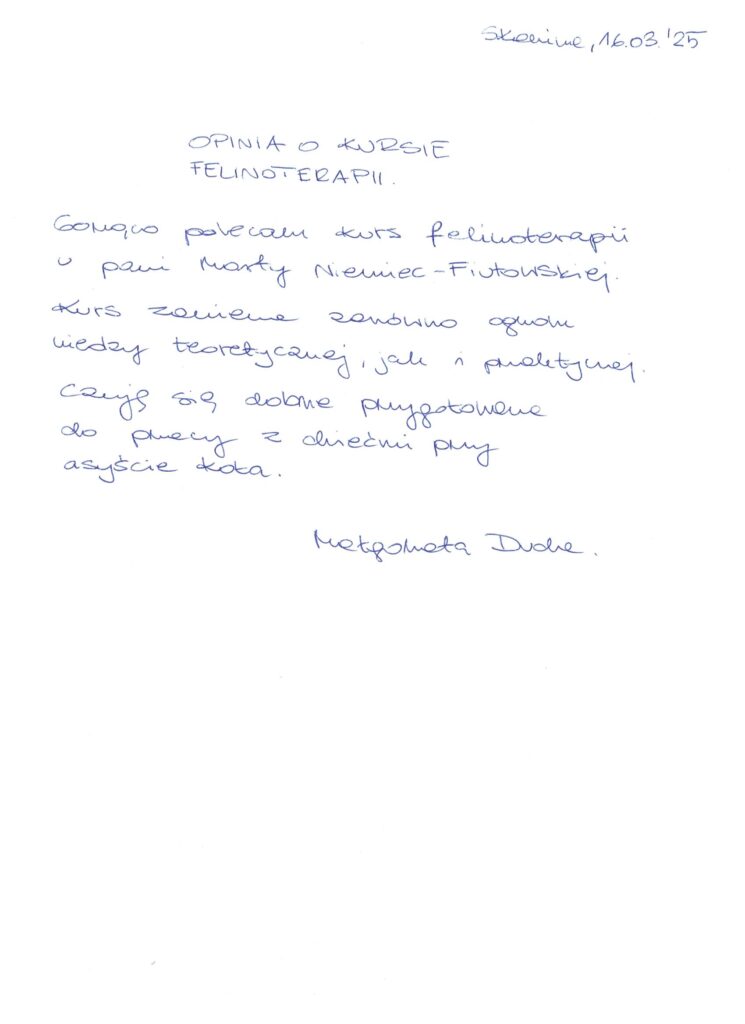 Skawina, 16.03.'25
OPINIA O KURSIE
FELINOTERAPII.
Gorąco polecam kurs felinoterapii
u pani Marty Niemiec-Fiutowskiej.
Kurs zawiera zarówno ogrom
wiedzy teoretycznej, jak i praktycznej.
Czuję się dobrze przygotowana
do pracy z dziećmi przy
asyście kota.
Małgorzata Duda.